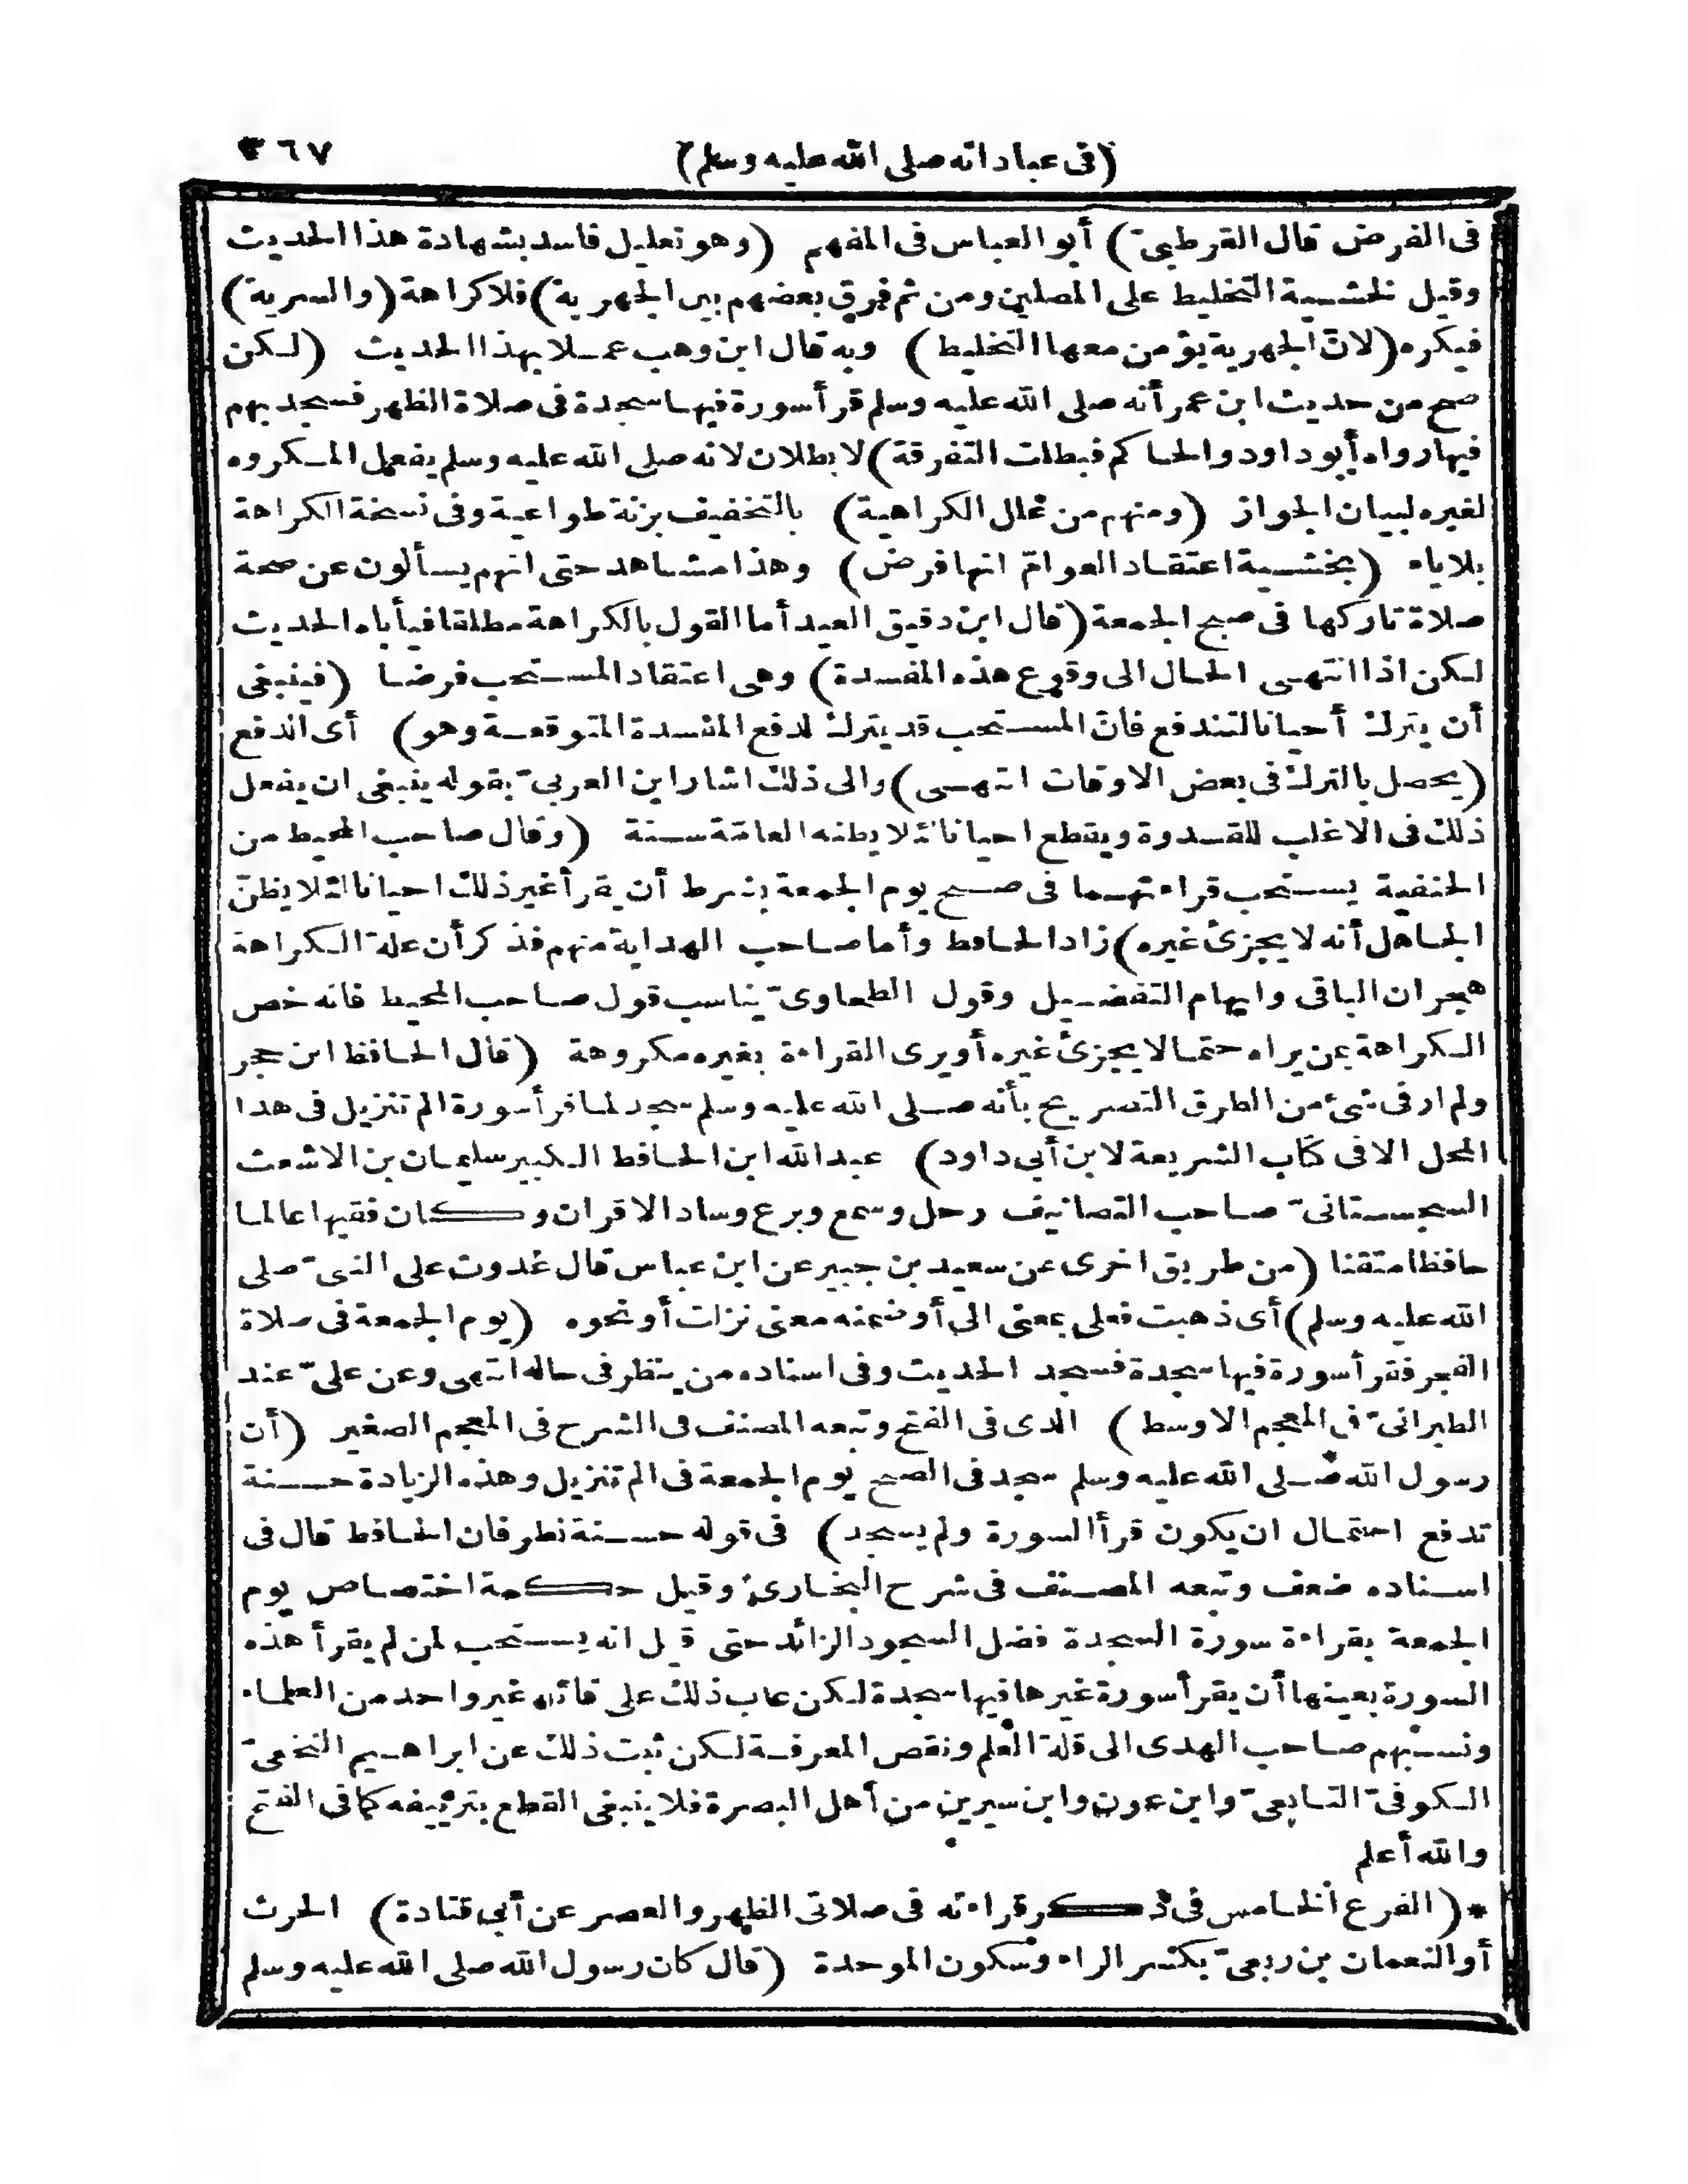 (فى عباداته صلى الله عليه وسلم) ٣٦٧
فى الفرض قال القرطبىّ) أبو العباس فى المفهم (وهو تعليل فاسد بشهادة هذا الحديث
وقيل لخشية التخليط على المصلين ومن ثم فرق بعضهم بين الجهرية) فلا كراهة (والسرية)
فيكره (لانّ الجهرية يؤمن معها التخليط) وبه قال ابن وهب عملا بهذا الحديث (لكن
صح من حديث ابن عمر أنه صلى الله عليه وسلم قرأ سورة فيها سجدة فى صلاة الظهر فسجد بهم
فيها رواه أبو داود والحاكم فبطلت التفرقة) لا بطلان لانه صلى الله عليه وسلم يفعل المكروه
لغيره لبيان الجواز (ومنهم من علل الكراهية) بالتخفيف بزنة طواعية وفى نسخة الكراهة
بلا ياء (بخشية اعتقاد العوامّ انها فرض) وهذا مشاهد حتى انهم يسألون عن صحة
صلاة تاركها فى صبح الجمعة (قال ابن دقيق العيد أما القول بالكراهة مطلقا فيأباه الحديث
لكن اذا انتهى الحال الى وقوع هذه المفسدة) وهى اعتقاد المستحب فرضا (فينبغى
أن يترك أحيانا لتندفع فانّ المستحب قد يترك لدفع المفسدة المتوقعة وهو) أى الدفع
(يحصل بالترك فى بعض الاوقات انتهى) والى ذلك اشار ابن العربىّ بقوله ينبغى ان يفعل
ذلك فى الاغلب للقدوة ويقطع احيانا لئلا يظنه العامّة سنة (وقال صاحب المحيط من
الحنفية يستحب قراءتهما فى صبح يوم الجمعة بشرط أن يقرأ غير ذلك احيانا لئلا يظنّ
الجاهل أنه لا يجزئ غيره) زاد الحافظ وأما صاحب الهداية منهم فذكر أن علة الكراهة
هجران الباقى وايهام التفضيل وقول الطحاوىّ يناسب قول صاحب المحيط فانه خص
الكراهة بمن يراه حتما لا يجزئ غيره أو يرى القراءة بغيره مكروهة (قال الحافظ ابن حجر
ولم ار فى شئ من الطرق التصريح بأنه صلى الله عليه وسلم سجد لما قرأ سورة الم تنزيل فى هذا
المحل الا فى كتاب الشريعة لابن أبى داود) عبد الله ابن الحافظ الكبير سليمان بن الاشعث
السجستانىّ صاحب التصانيف رحل وسمع وبرع وساد الاقران وكان فقيها عالما
حافظا متقنا (من طريق اخرى عن سعيد بن جبير عن ابن عباس قال غدوت على النبىّ صلى
الله عليه وسلم) أى ذهبت فعلى بمعنى الى أو ضمنه معنى نزلت أو نحوه (يوم الجمعة فى صلاة
الفجر فقرأ سورة فيها سجدة فسجد الحديث وفى اسناده من ينظر فى حاله انتهى وعن علىّ عند
الطبرانىّ فى المعجم الاوسط) الذى فى الفتح وتبعه المصنف فى الشرح فى المعجم الصغير (أن
رسول الله صلى الله عليه وسلم سجد فى الصبح يوم الجمعة فى الم تنزيل وهذه الزيادة حسنة
تدفع احتمال ان يكون قرأ السورة ولم يسجد) فى قوله حسنة نظر فان الحافظ قال فى
اسناده ضعف وتبعه المصنف فى شرح البخارى وقيل حكمة اختصاص يوم
الجمعة بقراءة سورة السجدة فضل السجود الزائد حتى قيل انه يستحب لمن لم يقرأ هذه
السورة بعينها أن يقرأ سورة غيرها فيها سجدة لكن عاب ذلك على قائله غير واحد من العلماء
ونسبهم صاحب الهدى الى قلة العلم ونقص المعرفة لكن ثبت ذلك عن ابراهيم النخعىّ
الكوفىّ التابعىّ وابن عون وابن سيرين من أهل البصرة فلا ينبغى القطع بتزييفه كما فى الفتح
والله أعلم
*(الفرع الخامس فى ذكر قراءته فى صلاتى الظهر والعصر عن أبى قتادة) الحرث
أو النعمان بن ربعىّ بكسر الراء وسكون الموحدة (قال كان رسول الله صلى الله عليه وسلم